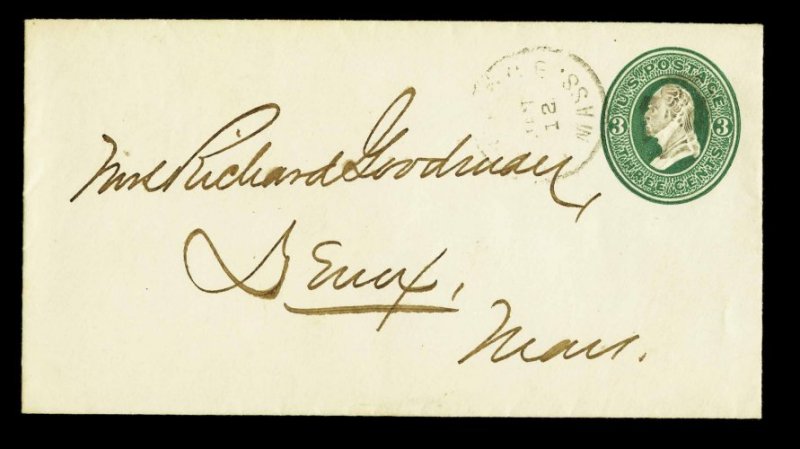 U.S. POSTAGE
3 3
THREE CENTS
MASS.
21
Mrs Richard Goodman,
Lenox,
Mass.